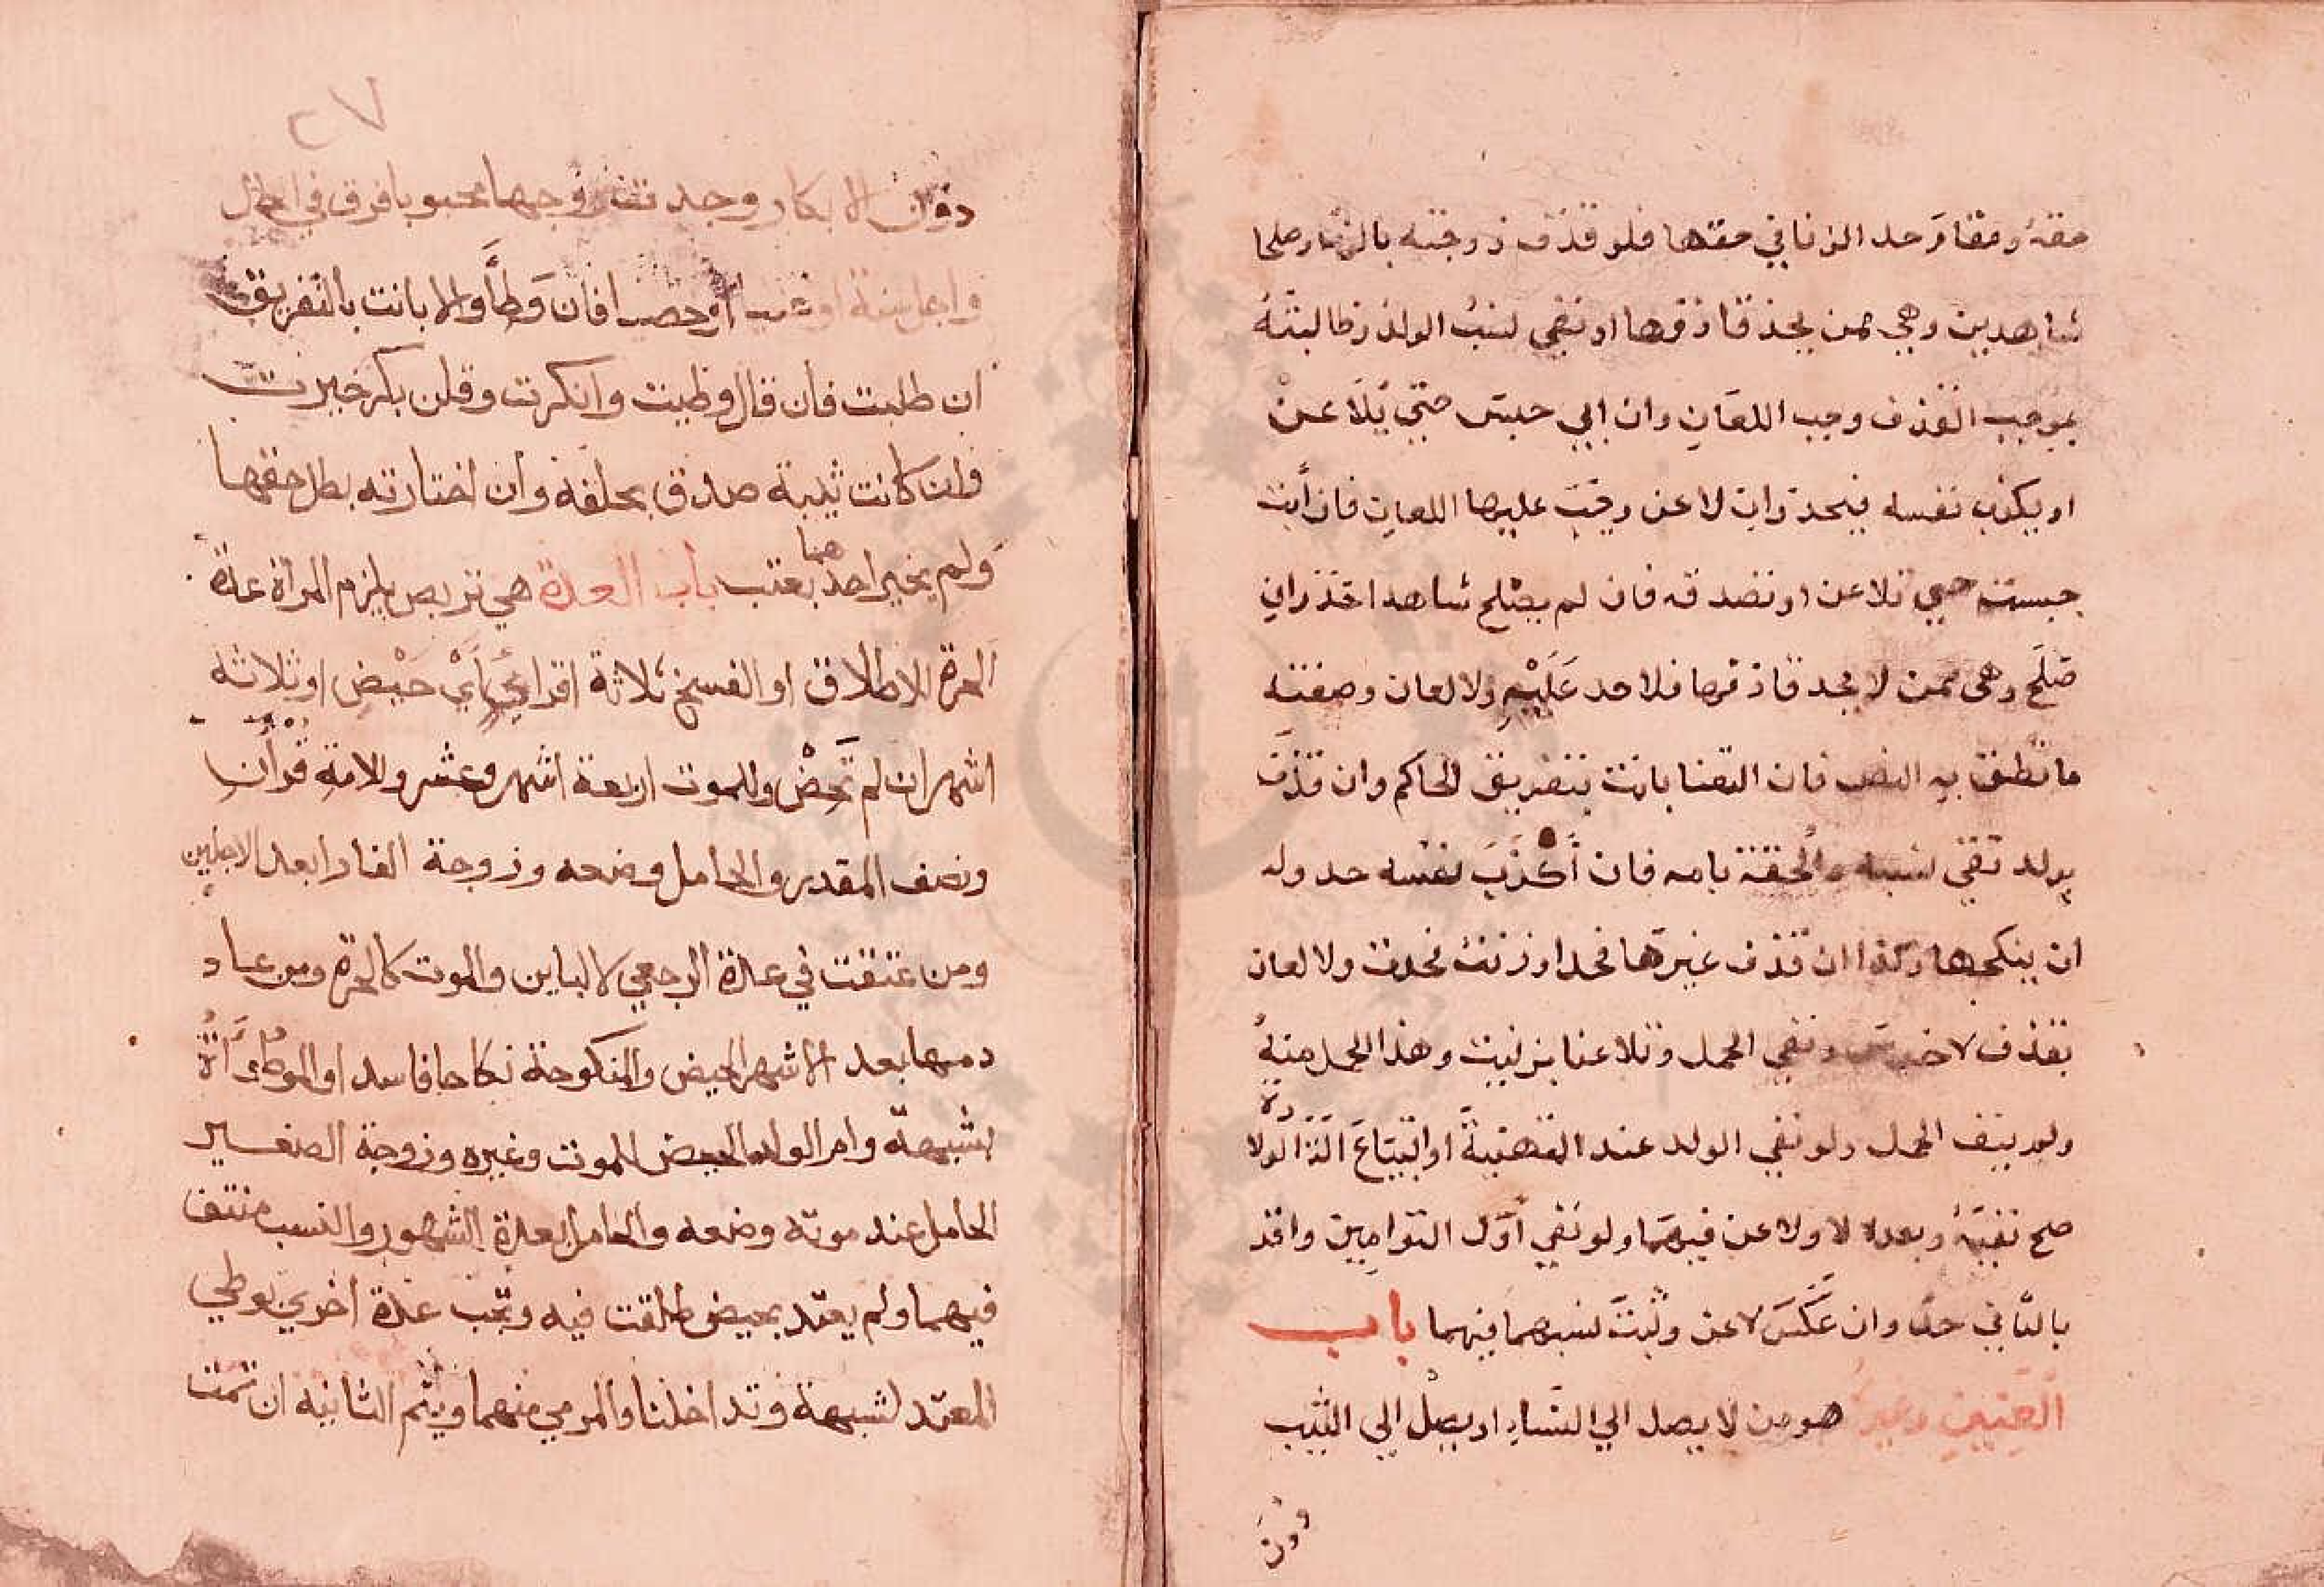 حقه ومقام حد الزنا في حقها فلو قذف زوجته بالزنا وصلحا
شاهدين وهي ممن يحد قاذفها او نفي نسب الولد وطالبته
بموجب القذف وجب اللعان وان ابي حبس حتي يلاعن
او يكذب نفسه فيحد وان لاعن وجب عليها اللعان فان أبت
حبست حتي تلاعن او تصدقه فان لم يصلح شاهدا حد وان
صلح وهي ممن لا يحد قاذفها فلا حد عليه ولا لعان وصفته
ما نطق به النص فان التعنا بانت بتفريق الحاكم وان قذف
بولد نفي نسبه والحقه بامه فان أكذب نفسه حد وله
ان ينكحها وكذا ان قذف غيرها فحد او زنت فحدت ولا لعان
بقذف لاخرس ونفي الحمل وتلاعنا بزنيت وهذا الحمل منه
ولم ينف الحمل ولو نفي الولد عند التهنية او ابتياع الة الولادة
صح نفيه وبعده لا ولاعن فيهما ولو نفي أول التوامين واقر
بالثاني حد وان عكس لاعن وثبت نسبهما فيهما باب
العنين وغيره هو من لا يصل الي النساء او يصل الي الثيب
دون
٢٧
دون الابكار وجدت زوجها مجبوبا فرق في الحال
واجل سنة لو عنينا او خصيا فان وطأ والا بانت بالتفريق
ان طلبت فان قال وطيت وانكرت وقلن بكر خيرت
وان كانت ثيبة صدق بحلفه وان اختارته بطل حقها
ولم يخير احدهما بعيب باب العدة هي تربص يلزم المرأة عدة
الحرة للاطلاق او الفسخ ثلاثة اقراء أي حيض او ثلاثة
اشهر ان لم تحض وللموت اربعة اشهر وعشر وللامة قرآن
ونصف المقدر وللحامل وضعه وزوجة الفار ابعد الاجلين
ومن عتقت في عدة الرجعي لا الباين والموت كالحرة ومن عاد
دمها بعد الاشهر الحيض والمنكوحة نكاحا فاسدا والموطؤة
بشبهة وام الولد الحيض للموت وغيره وزوجة الصغير
الحامل عند موته وضعه والحامل بعدة الشهور والنسب منتف
فيهما ولم يعتد بحيض طلقت فيه وتجب عدة اخري بوطي
المعتد لشبهة وتداخلتا والمرمي منهما ويتم الثانية ان تمت